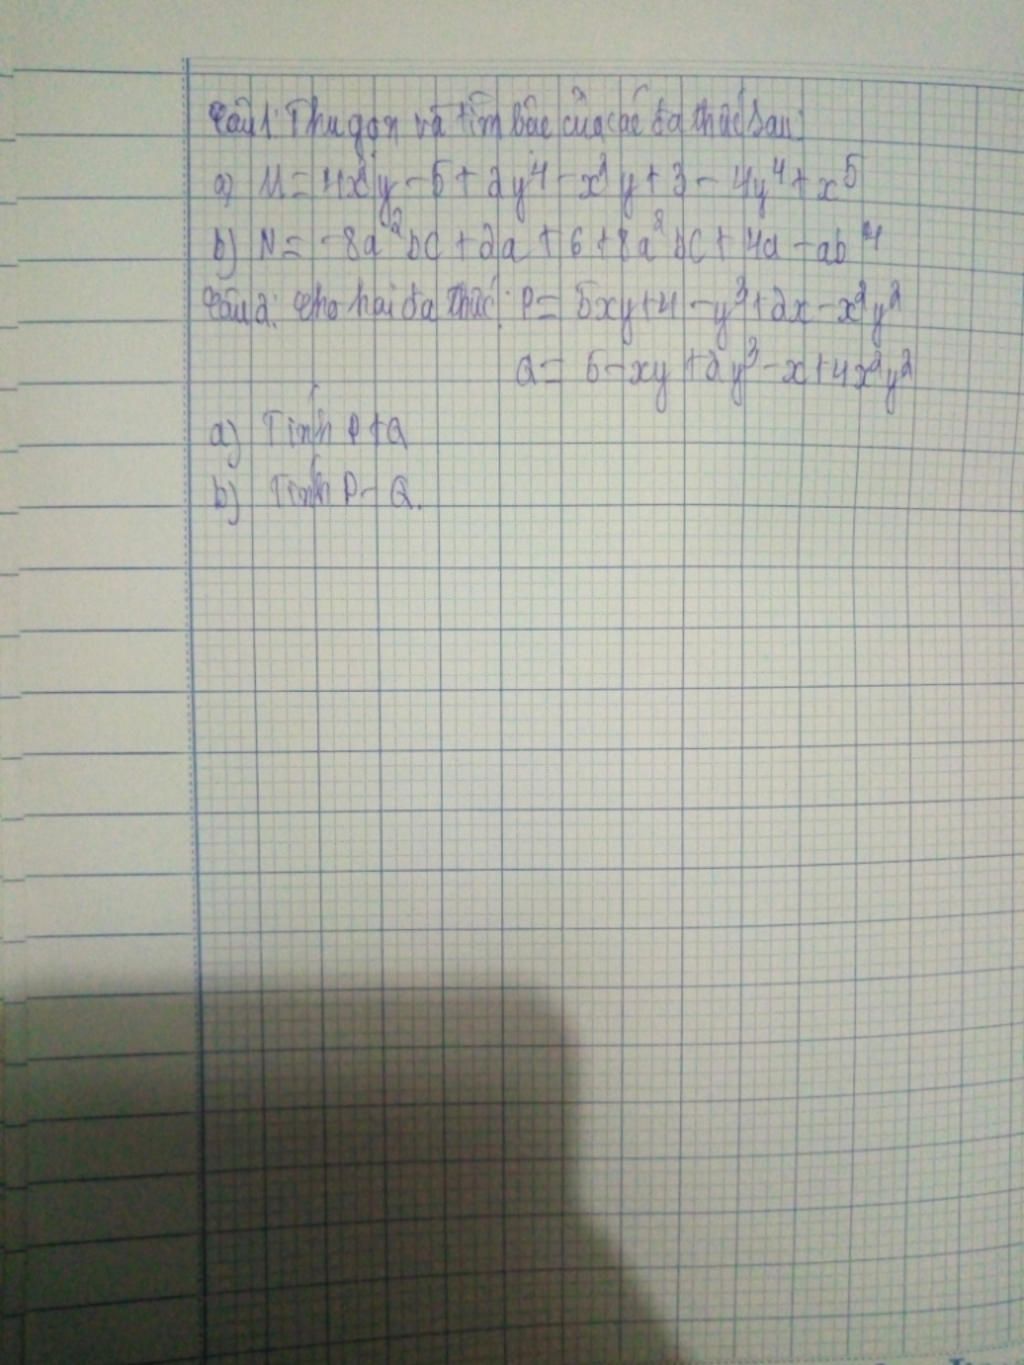 Câu 1: Thu gọn và tìm bậc của các đa thức sau:
a) M = 4x²y - 5 + 2y⁴ - x²y + 3 - 4y⁴ + x⁵
b) N = -8a²bc + 2a + 6 + 8a²bc + 4a - ab⁴
Câu 2: Cho hai đa thức: P = 5xy + 4 - y³ + 2x - x²y²
Q = 5 - xy + 2y³ - x + 4x²y²
a) Tính P + Q
b) Tính P - Q.